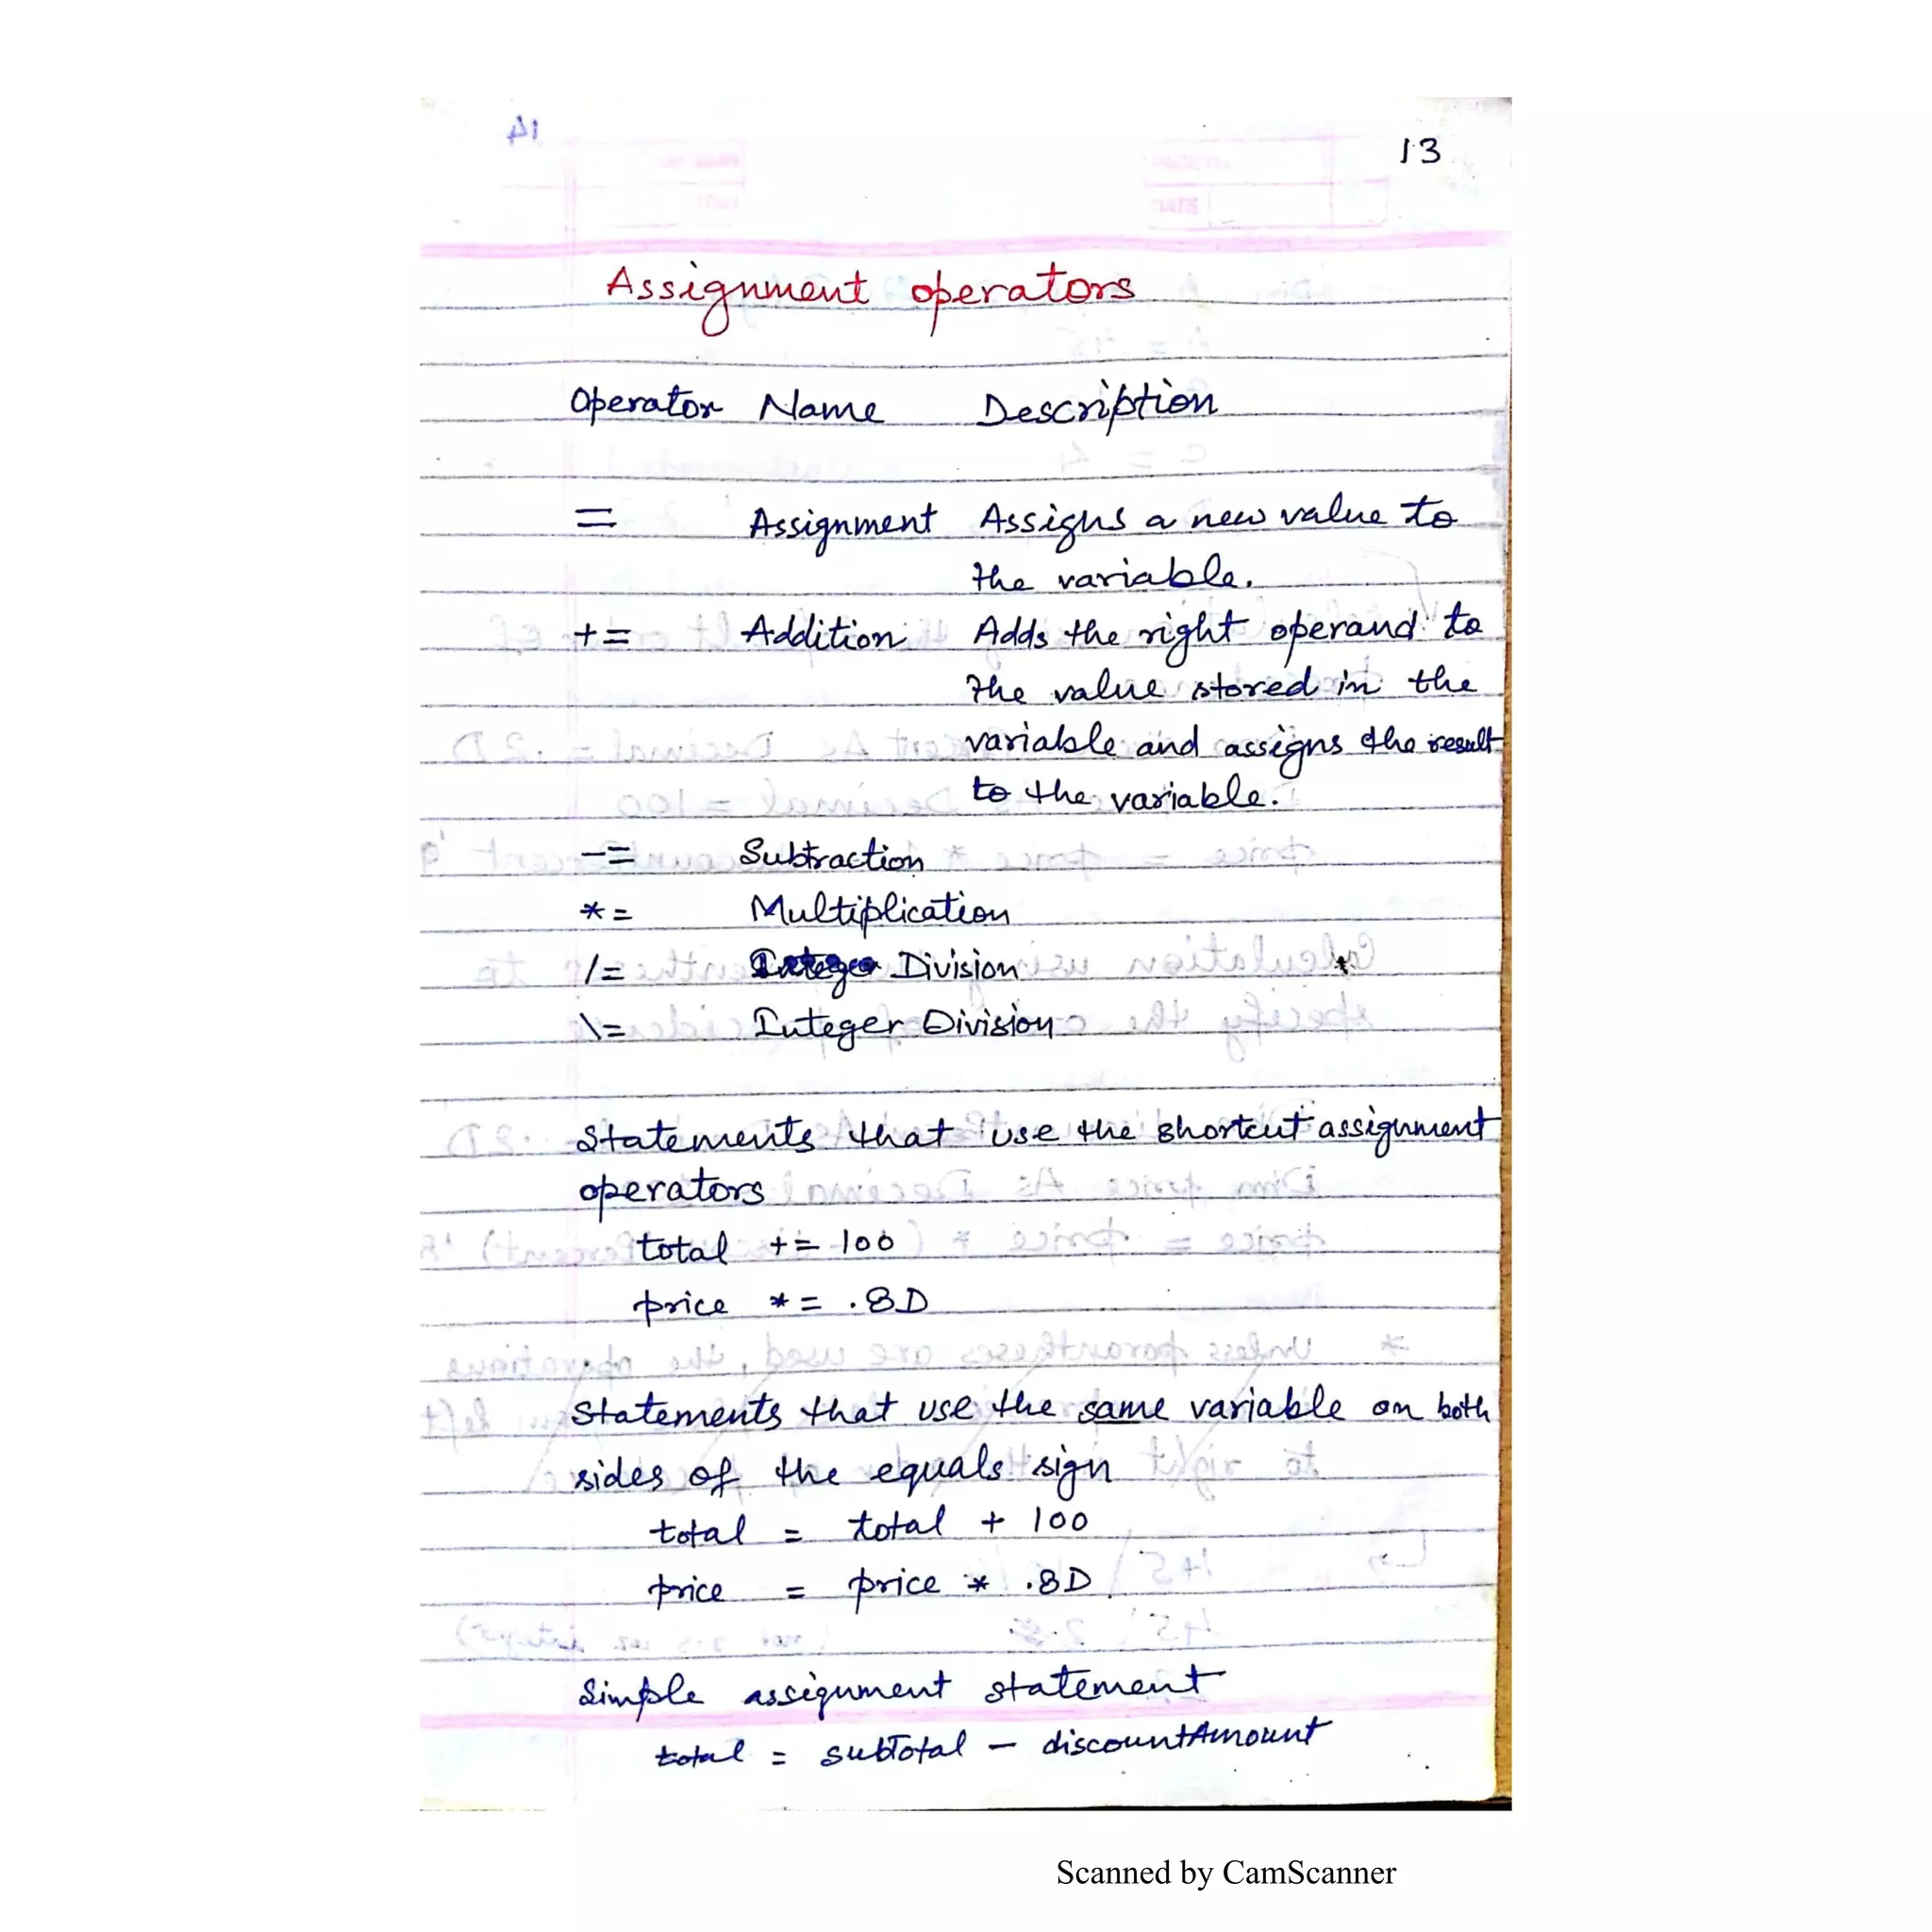 13
Assignment operators
Operator Name Description
= Assignment Assigns a new value to
the variable.
+= Addition Adds the right operand to
the value stored in the
variable and assigns the result
to the variable.
-= Subtraction
*= Multiplication
/= Division
\= Integer Division
Statements that use the shortcut assignment
operators
total += 100
price *= .8D
Statements that use the same variable on both
sides of the equals sign
total = total + 100
price = price * .8D
Simple assignment statement
total = subTotal - discountAmount
Scanned by CamScanner